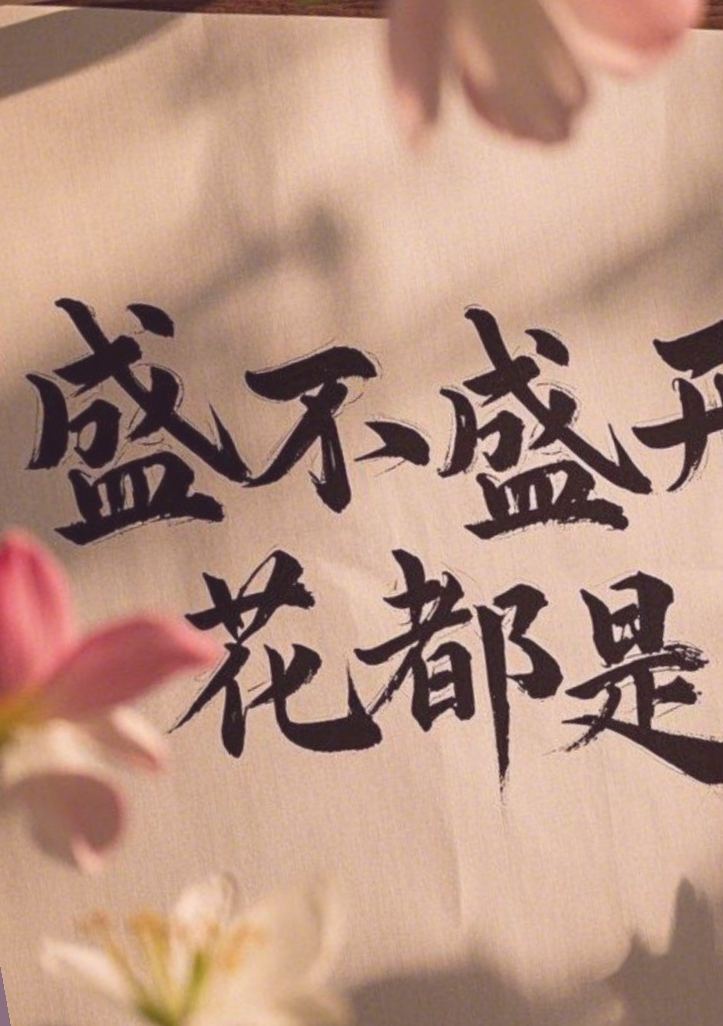 盛不盛开
花都是